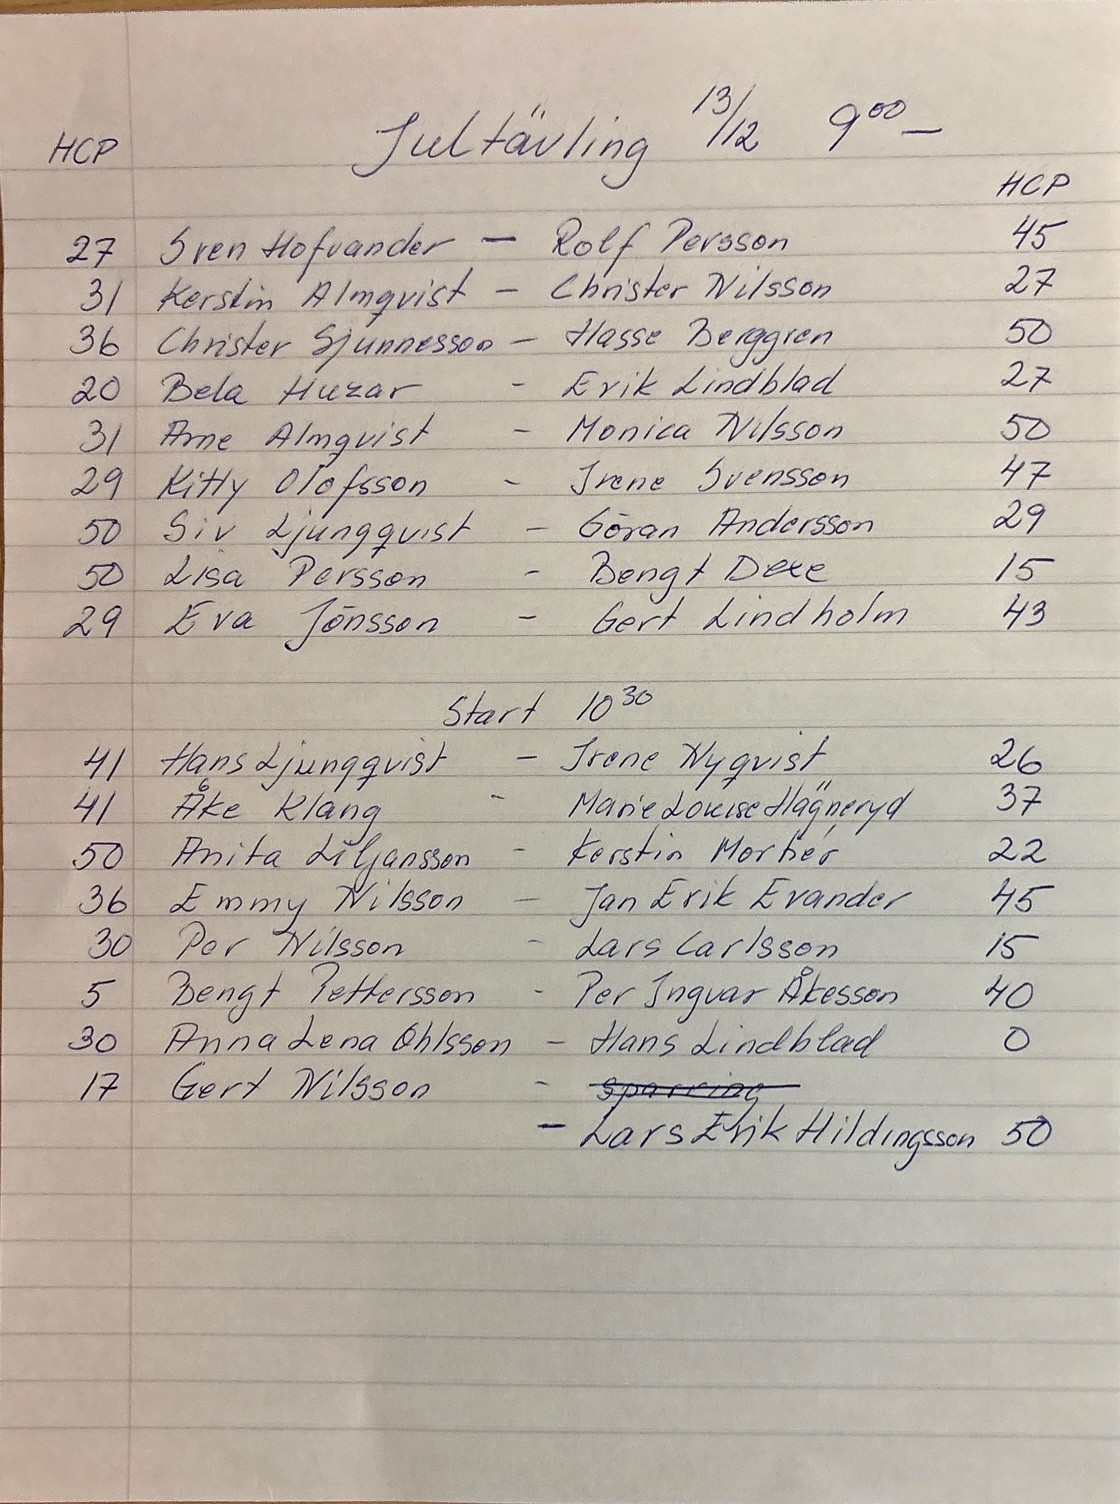 HCP Jultävling 13/12 9⁰⁰ –
HCP
27 Sven Hofvander – Rolf Persson 45
31 Kerstin Almqvist – Christer Nilsson 27
36 Christer Sjunnesson – Hasse Berggren 50
20 Bela Huzar - Erik Lindblad 27
31 Arne Almqvist - Monica Nilsson 50
29 Kitty Olofsson - Irene Svensson 47
50 Siv Ljungqvist - Göran Andersson 29
50 Lisa Persson - Bengt Dexe 15
29 Eva Jönsson - Gert Lindholm 43
Start 10³⁰
41 Hans Ljungqvist - Irene Nyqvist 26
41 Åke Klang - Marie Louise Hägneryd 37
50 Anita Liljansson - Kerstin Mortiér 22
36 Emmy Nilsson - Jan Erik Evander 45
30 Per Nilsson - Lars Carlsson 15
5 Bengt Pettersson - Per Ingvar Åkesson 40
30 Anna Lena Ohlsson - Hans Lindblad 0
17 Gert Nilsson - sparring
– Lars Erik Hildingsson 50